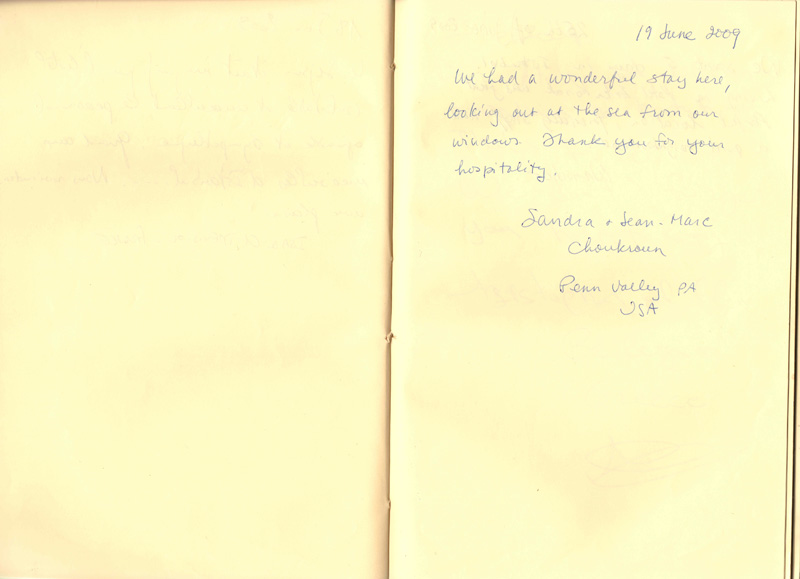 19 June 2009
We had a wonderful stay here,
looking out at the sea from our
windows. Thank you for your
hospitality.
Sandra + Jean-Marc
Choukroun
Penn Valley PA
USA